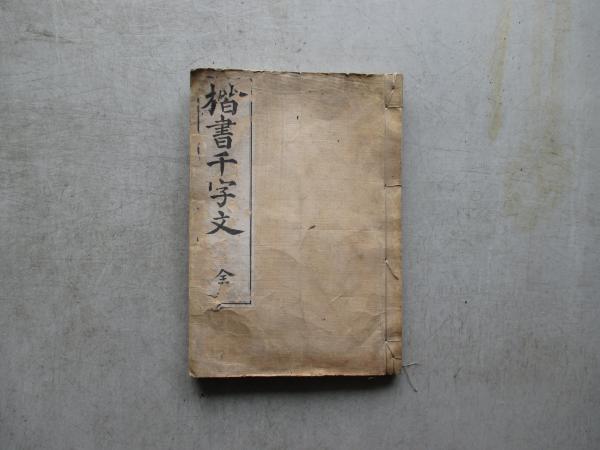 楷書千字文 全